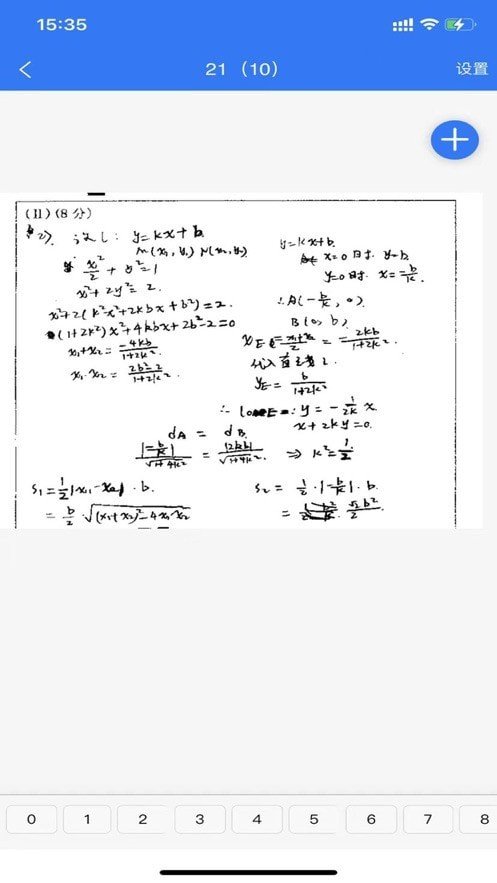 15:35
21（10）
设置
(II)(8分)
(2). 设l: y=kx+b.
M(x₁,y₁) N(x₂,y₂)
x²/2 + y²=1
x²+2y²=2.
x²+2(k²x²+2kbx+b²)=2.
(1+2k²)x²+4kbx+2b²-2=0
x₁+x₂=-4kb/1+2k².
x₁·x₂=2b²-2/1+2k².
y=kx+b.
x=0时. y=b.
y=0时. x=-b/k.
∴A(-b/k, 0).
B(0, b).
x_E=x₁+x₂/2=-2kb/1+2k².
代入直线l.
y_E=b/1+2k²
∴ l_OE: y=-1/2k x.
x+2ky=0.
d_A = d_B
|-b/k|/√1+4k² = |2kb|/√1+4k². ⇒ k²=1/2
S₁=1/2|x₁-x₂|·b.
=b/2·√(x₁+x₂)²-4x₁x₂
S₂=1/2·|-b/k|·b.
=√2b²/2
0 1 2 3 4 5 6 7 8